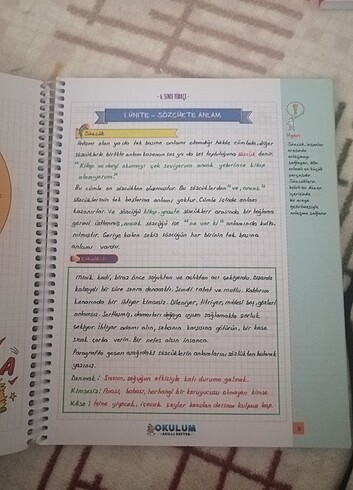 6. SINIF TÜRKÇE
1. ÜNİTE - SÖZCÜKTE ANLAM
Sözcük
Anlamı olan ya da tek başına anlamı olmadığı hâlde cümlede, diğer
sözcüklerle birlikte anlam kazanan ses ya da ses topluluğuna sözcük denir.
"Kitap ve dergi okumayı çok seviyorum ancak yeterince kitap
alamıyorum."
Bu cümle on sözcükten oluşmuştur. Bu sözcüklerden "ve, ancak"
sözcüklerinin tek başlarına anlamı yoktur. Cümle içinde anlam
kazanırlar. Ve sözcüğü kitap-gazete sözcükleri arasında bir bağlama
görevi üstlenmiş, ancak sözcüğü ise "ne var ki" anlamında kulla-
nılmıştır. Geriye kalan sekiz sözcüğün her birinin tek başına
anlamı vardır.
Etkinlik
Minik kedi, biraz önce soğuktan ve açlıktan acı çekiyordu.
kalsaydı bir süre sonra donacaktı. Şimdi rahat ve mutlu. Kaldırım
kenarında bir ihtiyar kimsesiz. Dileniyor, titriyor, midesi boş, gözleri
anlamsız.
sekiyor. İhtiyar adamı alın, sobanın karşısına götürün, bir kase
sıcak çorba verin. Bir nefes alsın insanca.
Paragrafta geçen aşağıdaki sözcüklerin anlamlarını sözlükten bularak
yazınız.
Donmak: Sıvının, soğuğun etkisiyle katı duruma gelmek.
Kimsesiz: Anası, babası, herhangi bir koruyucusu olmayan kimse.
Kâse: İçine yiyecek, içecek şeyler konulan derince kulpsuz kap.
Uyarı
Sözcük, insanlar
arasında
anlaşmayı
sağlayan, dilin
anlamlı en küçük
parçasıdır.
Sözcüklerin
belirli bir düzen
içerisinde
bir araya
getirilmesiyle
anlaşma sağlanır.
OKULUM
AKILLI DEFTER